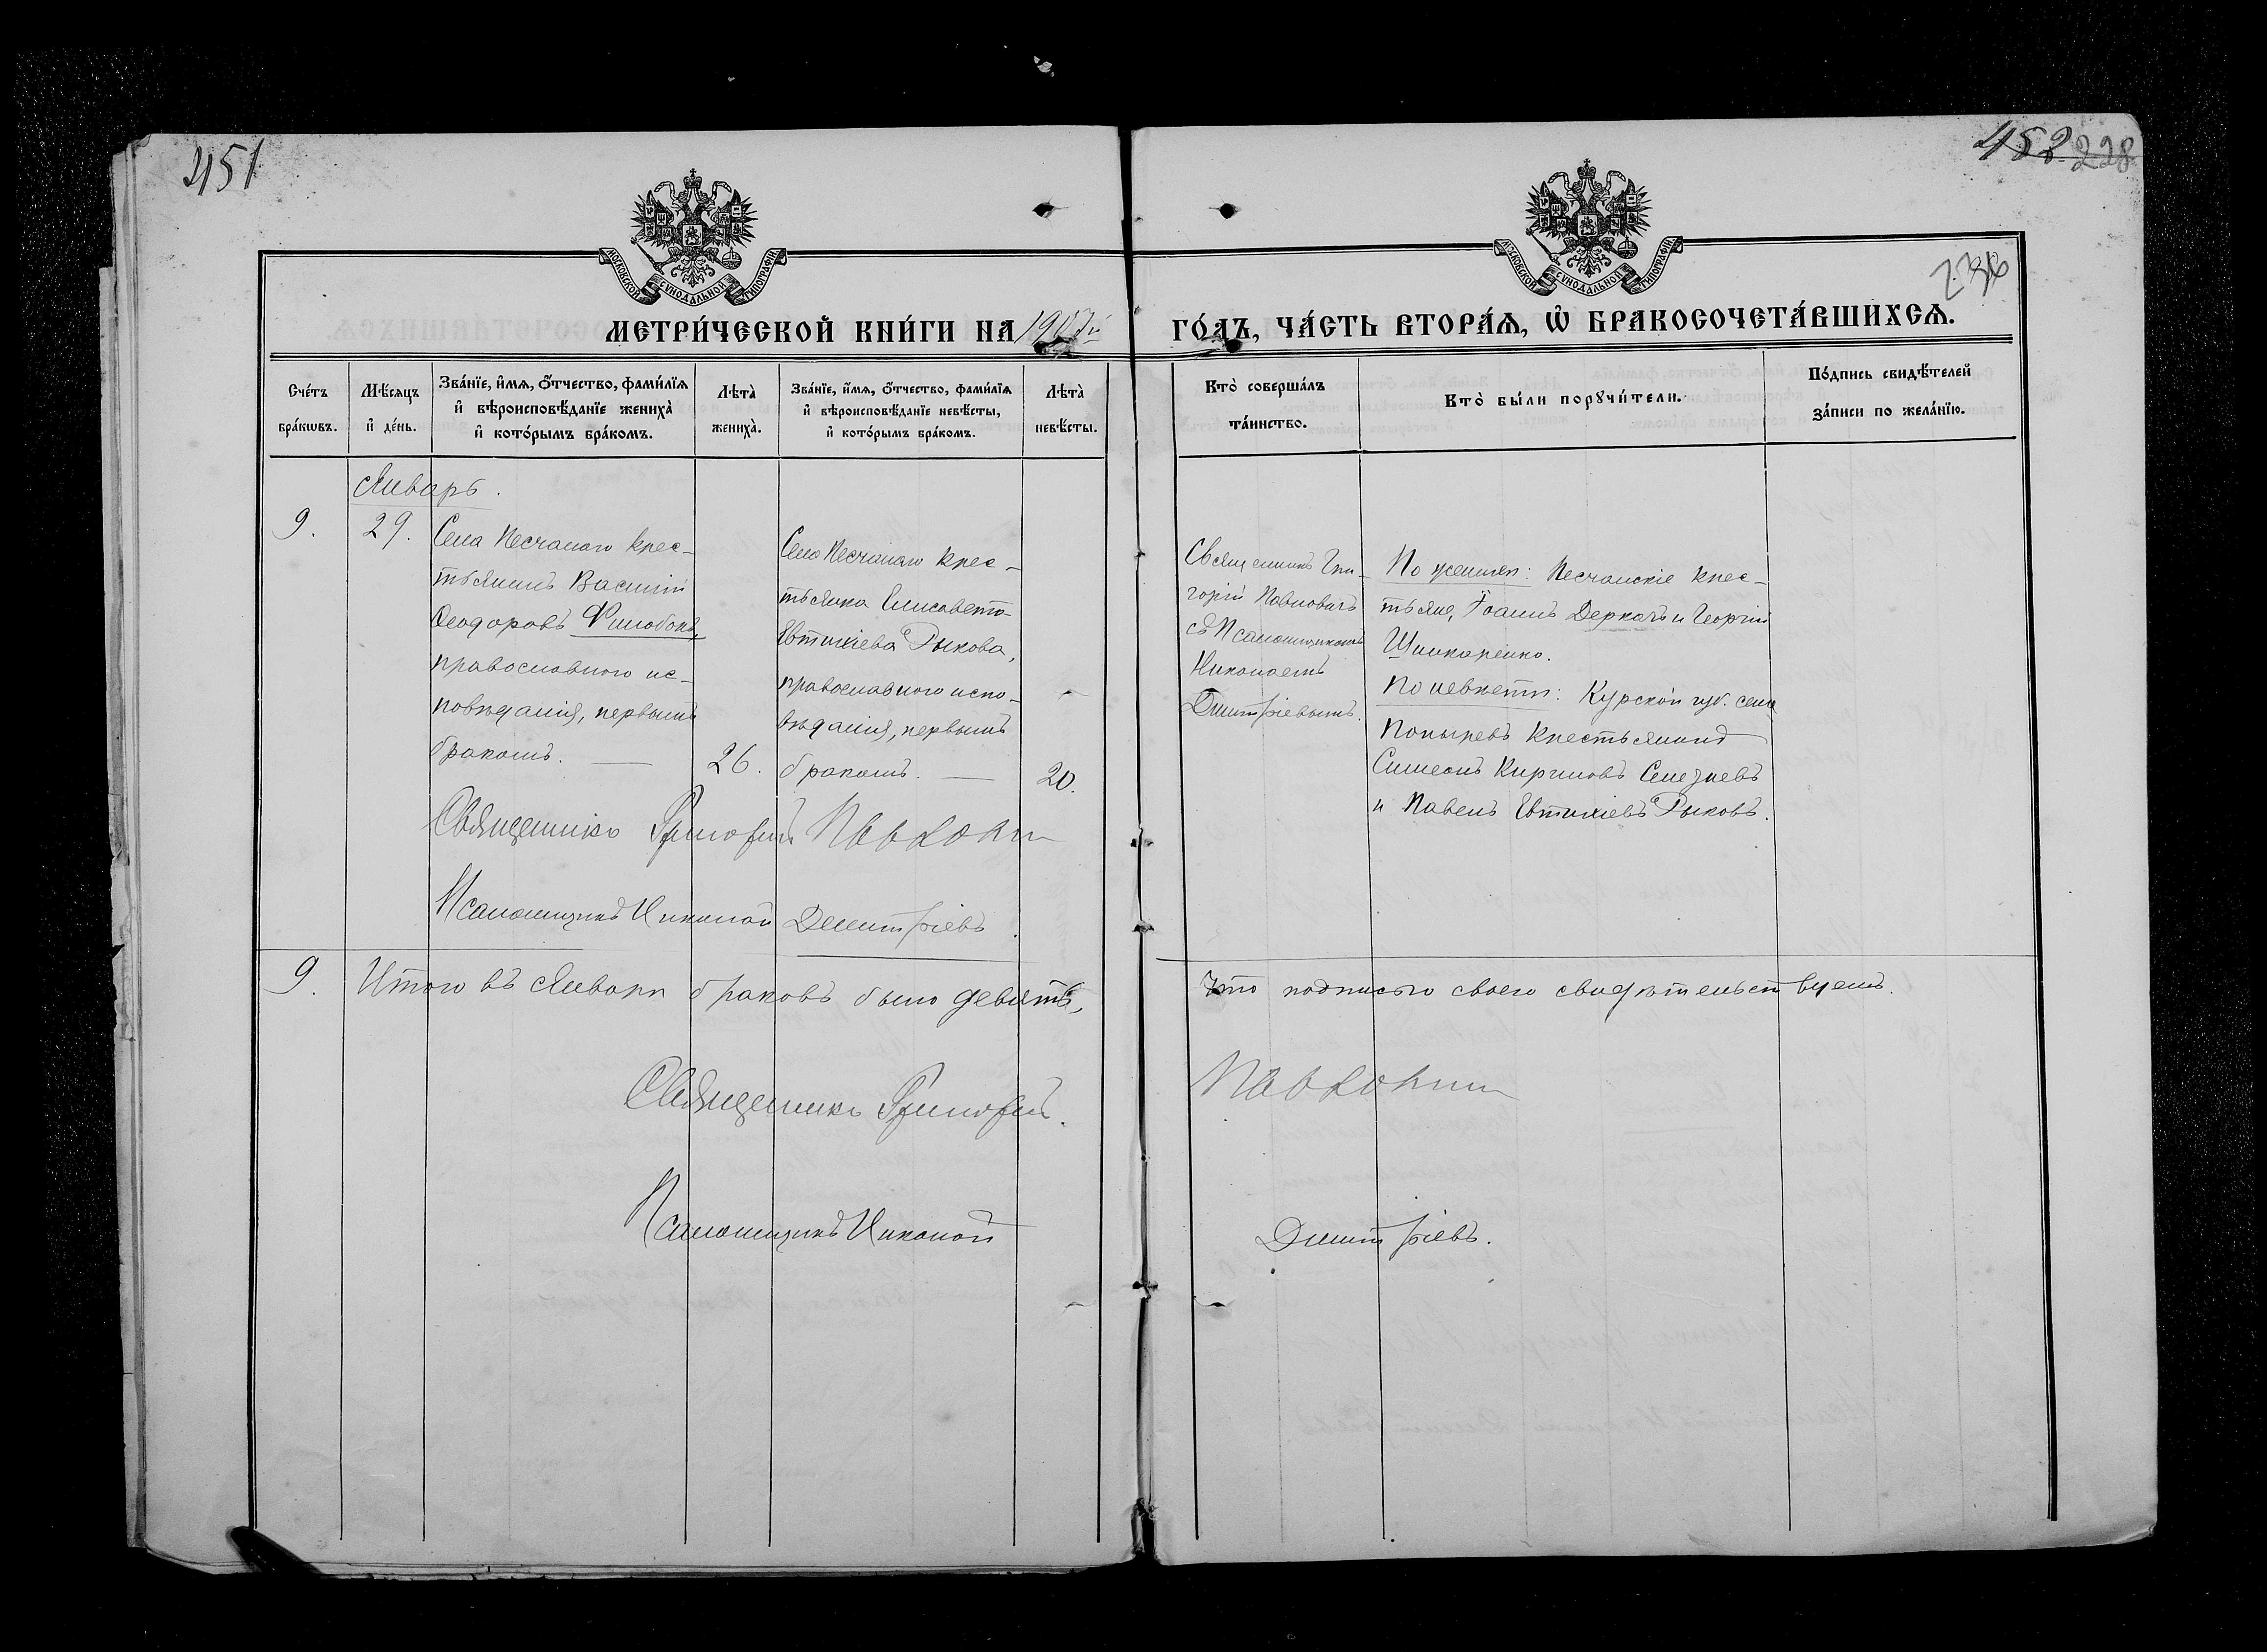 451
452 228
236
МОСКОВСКОЙ СѴНОДАЛЬНОЙ ТИПОГРАФІИ
МОСКОВСКОЙ СѴНОДАЛЬНОЙ ТИПОГРАФІИ
МЕТРИ́ЧЕСКОЙ КНИ́ГИ НА 1907й ГО́ДЪ, ЧА́СТЬ ВТОРА́Ѧ, Ѽ БРАКОСОЧЕТА́ВШИХСѦ.
Сче́тъ
бра́кѡвъ.
Мѣ́сяцъ
и҆ де́нь.
Зва́нїе, и҆́мя, ѻ҆́тчество, фами́лїя
и҆ вѣроисповѣ́данїе жениха̀
и҆ кото́рымъ бра́комъ.
Лѣта̀
жениха̀.
Зва́нїе, и҆́мя, ѻ҆́тчество, фами́лїя
и҆ вѣроисповѣ́данїе невѣ́сты,
и҆ кото́рымъ бра́комъ.
Лѣта̀
невѣ́сты.
Кто̀ соверша́лъ
та́инство.
Кто̀ бы́ли порꙋчи́тели.
По́дпись свидѣ́телей
за́писи по жела́нїю.
Январь.
9.
29.
Села Песчанаго крес-
тьянинъ Василій
Ѳеодоровъ Филобокъ,
православного ис-
повѣданія, первымъ
бракомъ.
26.
Села Песчанаго крес-
тьянка Елисавета
Евтихіева Рыкова,
православного испо-
вѣданія, первымъ
бракомъ.
20.
Священникъ Гри-
горій Павловичъ
съ Псаломщикомъ
Николаемъ
Дмитріевымъ.
По женихѣ: Песчанскіе крес-
тьяне, Іоаннъ Деркачъ и Георгій
Шинкаренко.
По невѣстѣ: Курской губ. села
крестьянинъ
Симеонъ Кириловъ Селезневъ
и Павелъ Евтихіевъ Рыковъ.
Священникъ Григорій
Псаломщикъ Николай Дмитріевъ.
9. Итого въ Январѣ браковъ было девять, что подписью своею свидѣтельствуемъ.
Священникъ Григорій
Псаломщикъ Николай Дмитріевъ.